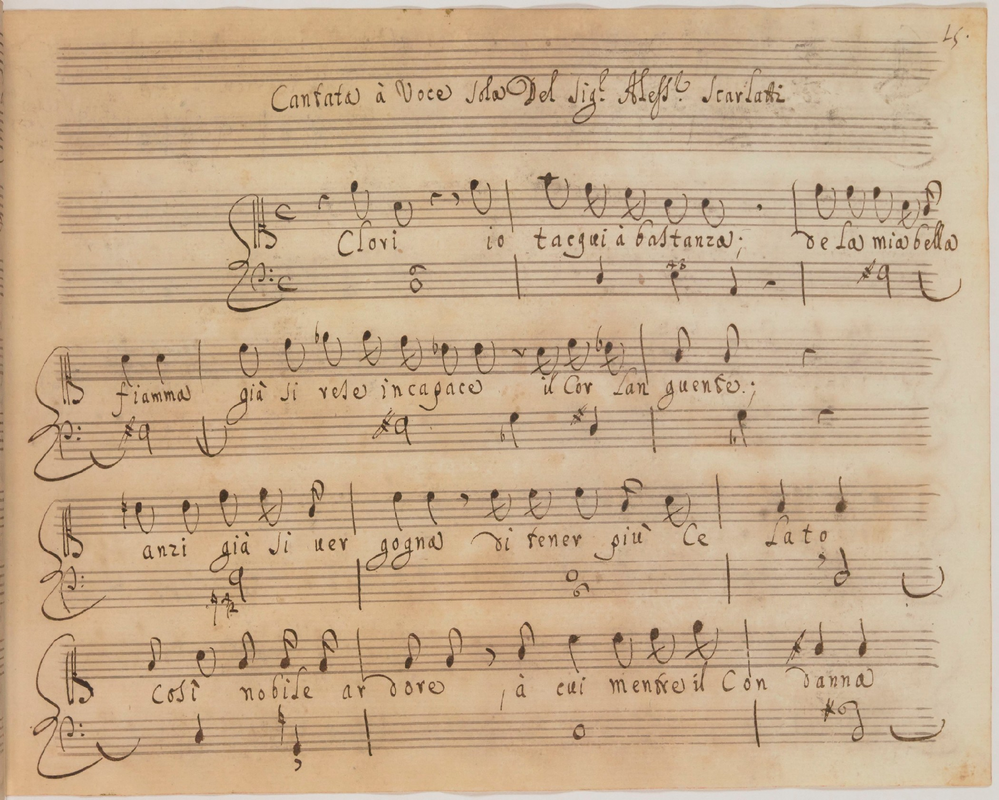 45.
Cantata à Voce Sola Del Sig.r Aless.o Scarlatti
Clori io tacqui à bastanza; de la mia bella
fiamma già si rese incapace il Cor Lan guente.;
anzi già si uer gogna di tener più Ce lato
Così nobile ar dore , à cui mentre il Con danna